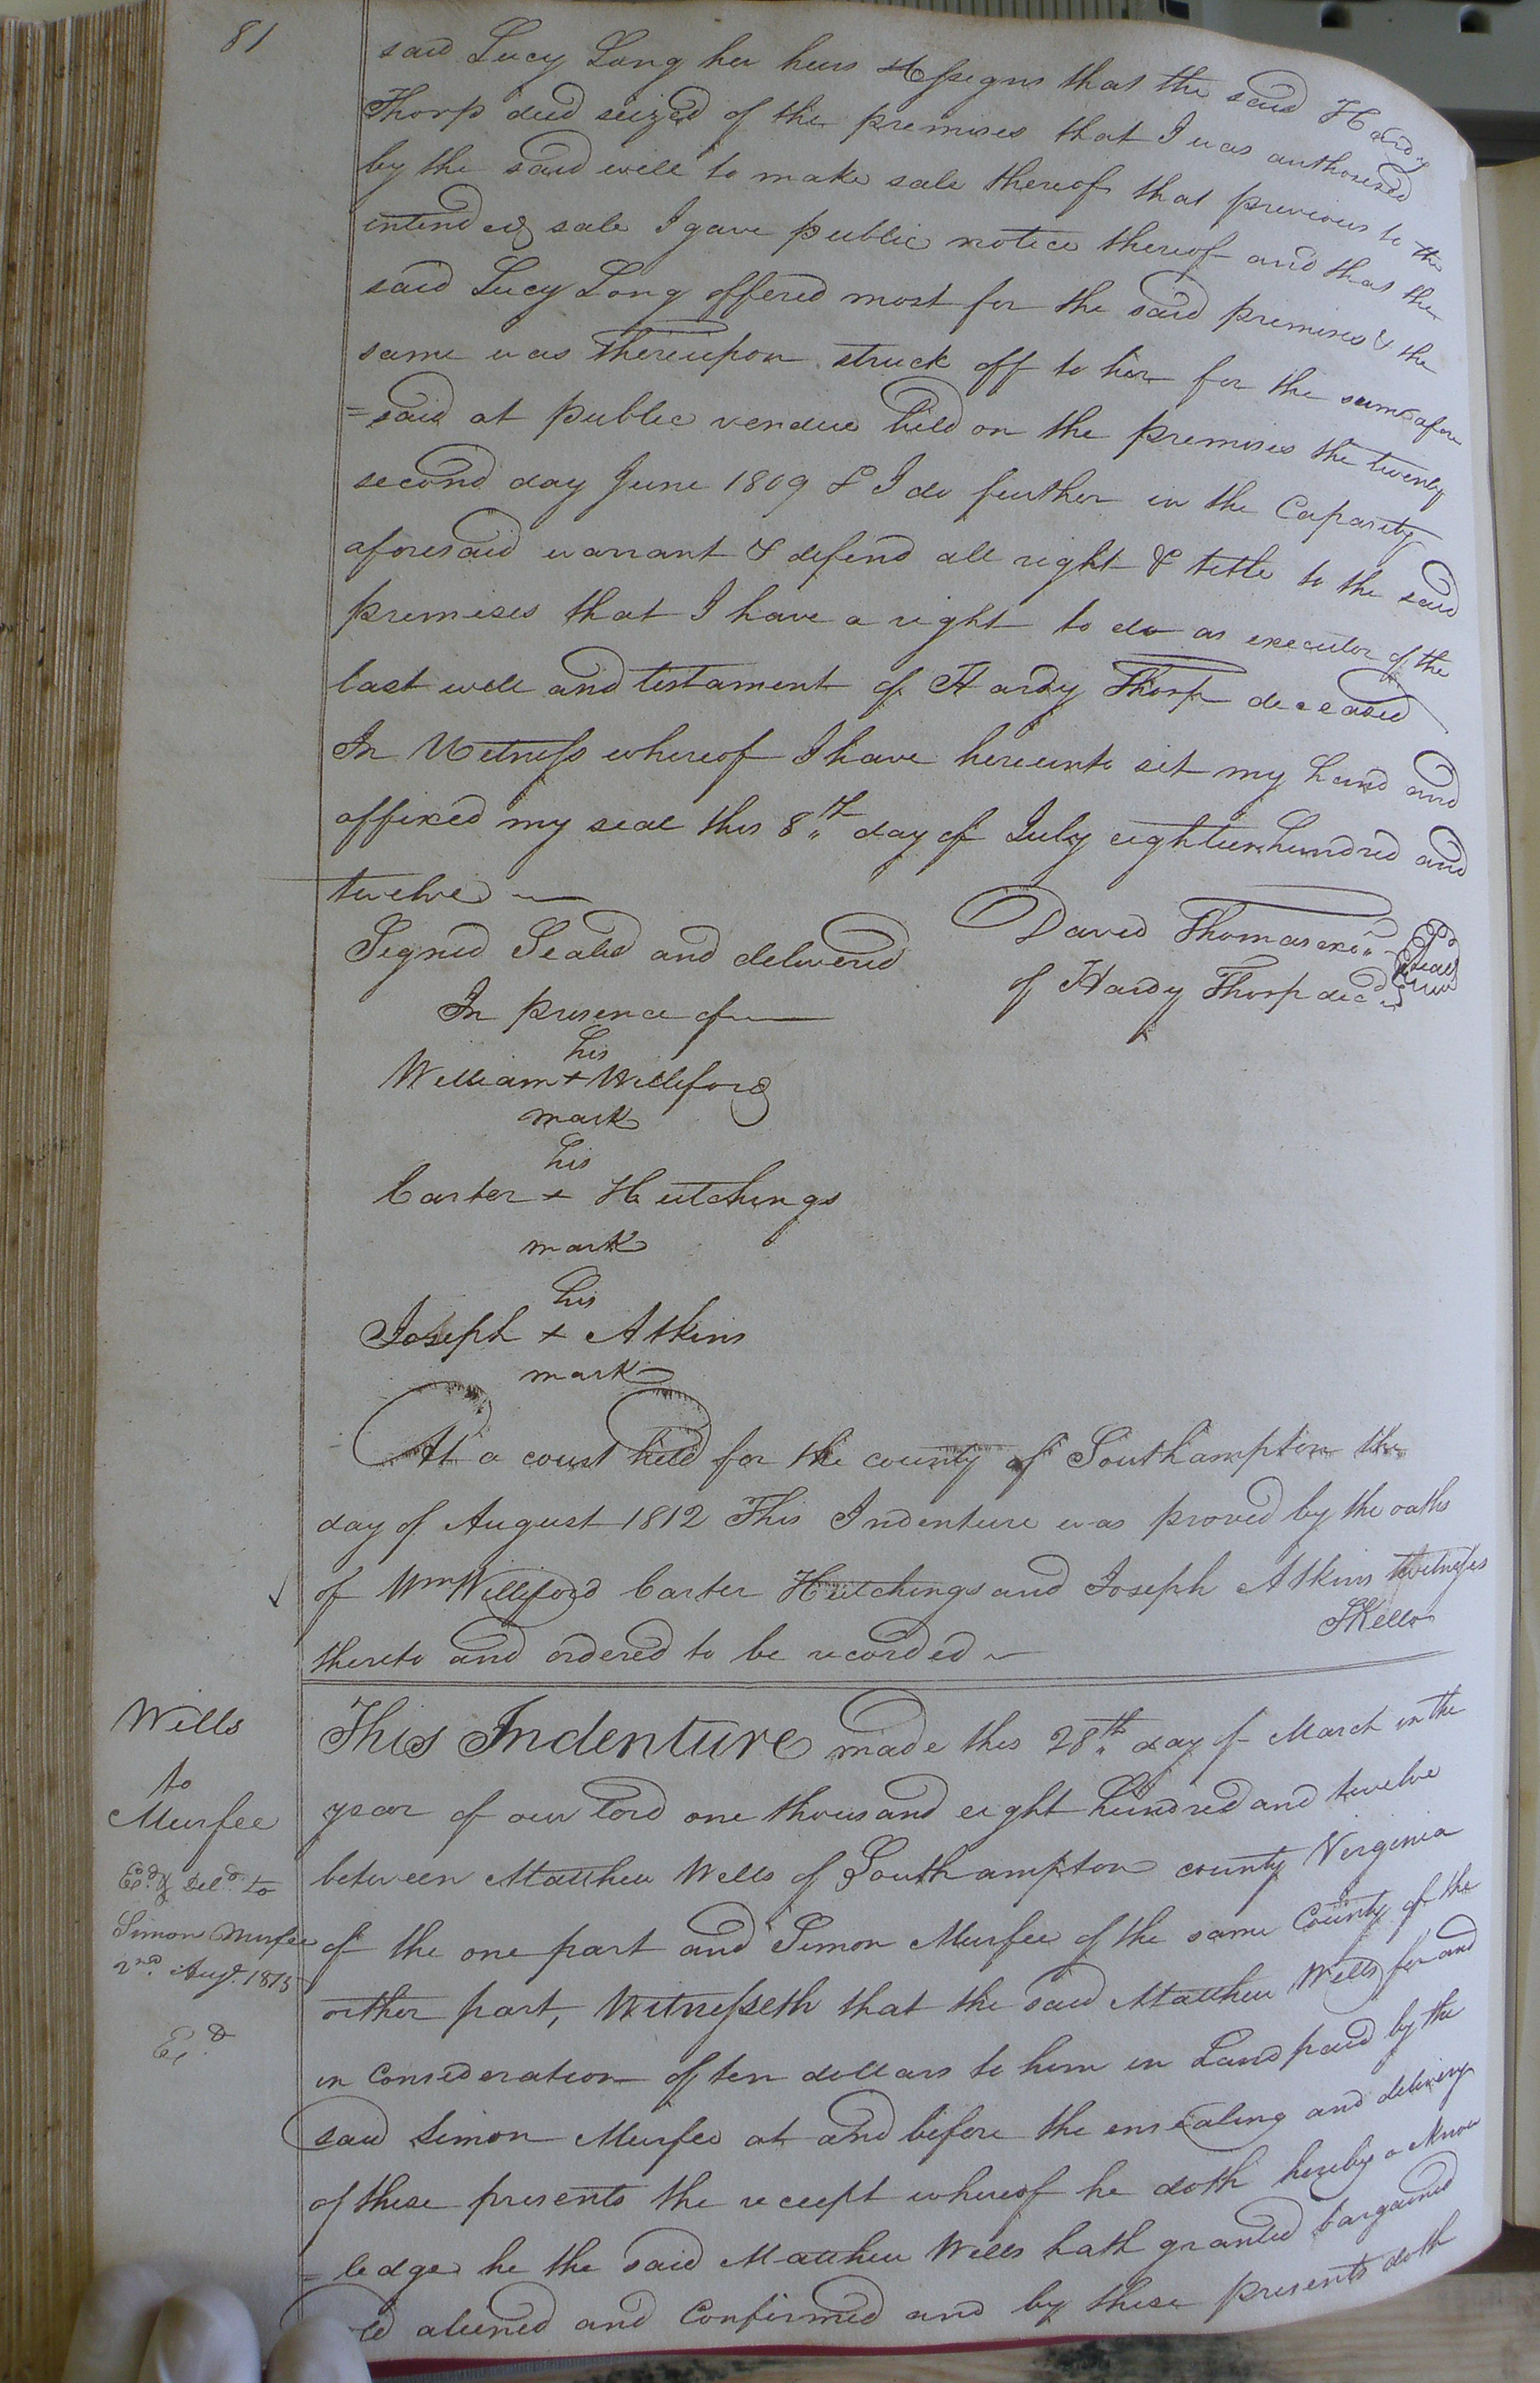 81
said Lucy Long her heirs & assigns that the said Hardy
Thorp died seized of the premises that I was authorised
by the said will to make sale thereof that previous to the
intended sale I gave public notice thereof and that the
said Lucy Long offered most for the said premises & the
same was thereupon struck off to her for the sum afore
=said at public vendue held on the premises the twenty
second day June 1809 & I do further in the Capasity
aforesaid warrant & defend all right & title to the said
premises that I have a right to do as executor of the
last will and testament of Hardy Thorp deceased
In Witness whereof I have hereunto set my hand and
affixed my seal this 8th day of July eighteen hundred and
twelve
Signed Sealed and delivered
In presence of
David Thomas exr.
of Hardy Thorp decd.
Seal
his
William + Williford
mark
his
Carter + Hutchings
mark
his
Joseph + Atkins
mark
At a court held for the county of Southampton the
day of August 1812 This Indenture was proved by the oaths
of Wm Williford Carter Hutchings and Joseph Atkins witnesses
thereto and ordered to be recorded
SKello
Wills
to
Murfee
Exd. & Deld. to
Simon Murfee
2nd. Augt. 1815
Exd.
This Indenture made this 28th day of March in the
year of our lord one thousand eight hundred and twelve
between Matthew Wells of Southampton county Virginia
of the one part and Simon Murfee of the same County of the
orther part, Witnesseth that the said Matthew Wells for and
in Consideration of ten dollars to him in Land paid by the
said Simon Murfee at and before the ensealing and delivery
of these presents the receipt whereof he doth hereby acknow
=ledge he the said Matthew Wells hath granted bargained
aliened and Confirmed and by these presents doth